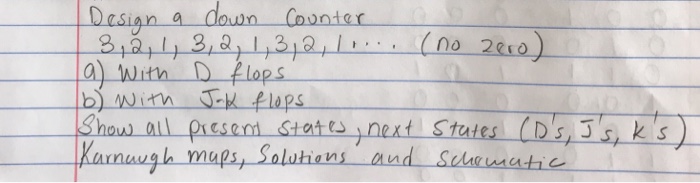 Design a down Counter
3,2,1, 3,2,1,3,2,1.... (no zero)
a) With D flops
b) With J-K flops
Show all present states, next states (D's, J's, K's)
Karnaugh maps, Solutions and schematic